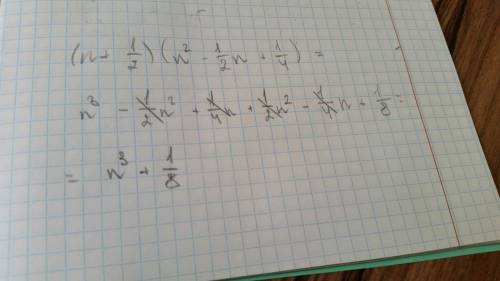 (n + 1/2)(n² - 1/2n + 1/4) =
n³ - 1/2n² + 1/4n + 1/2n² - 1/4n + 1/8 =
= n³ + 1/8